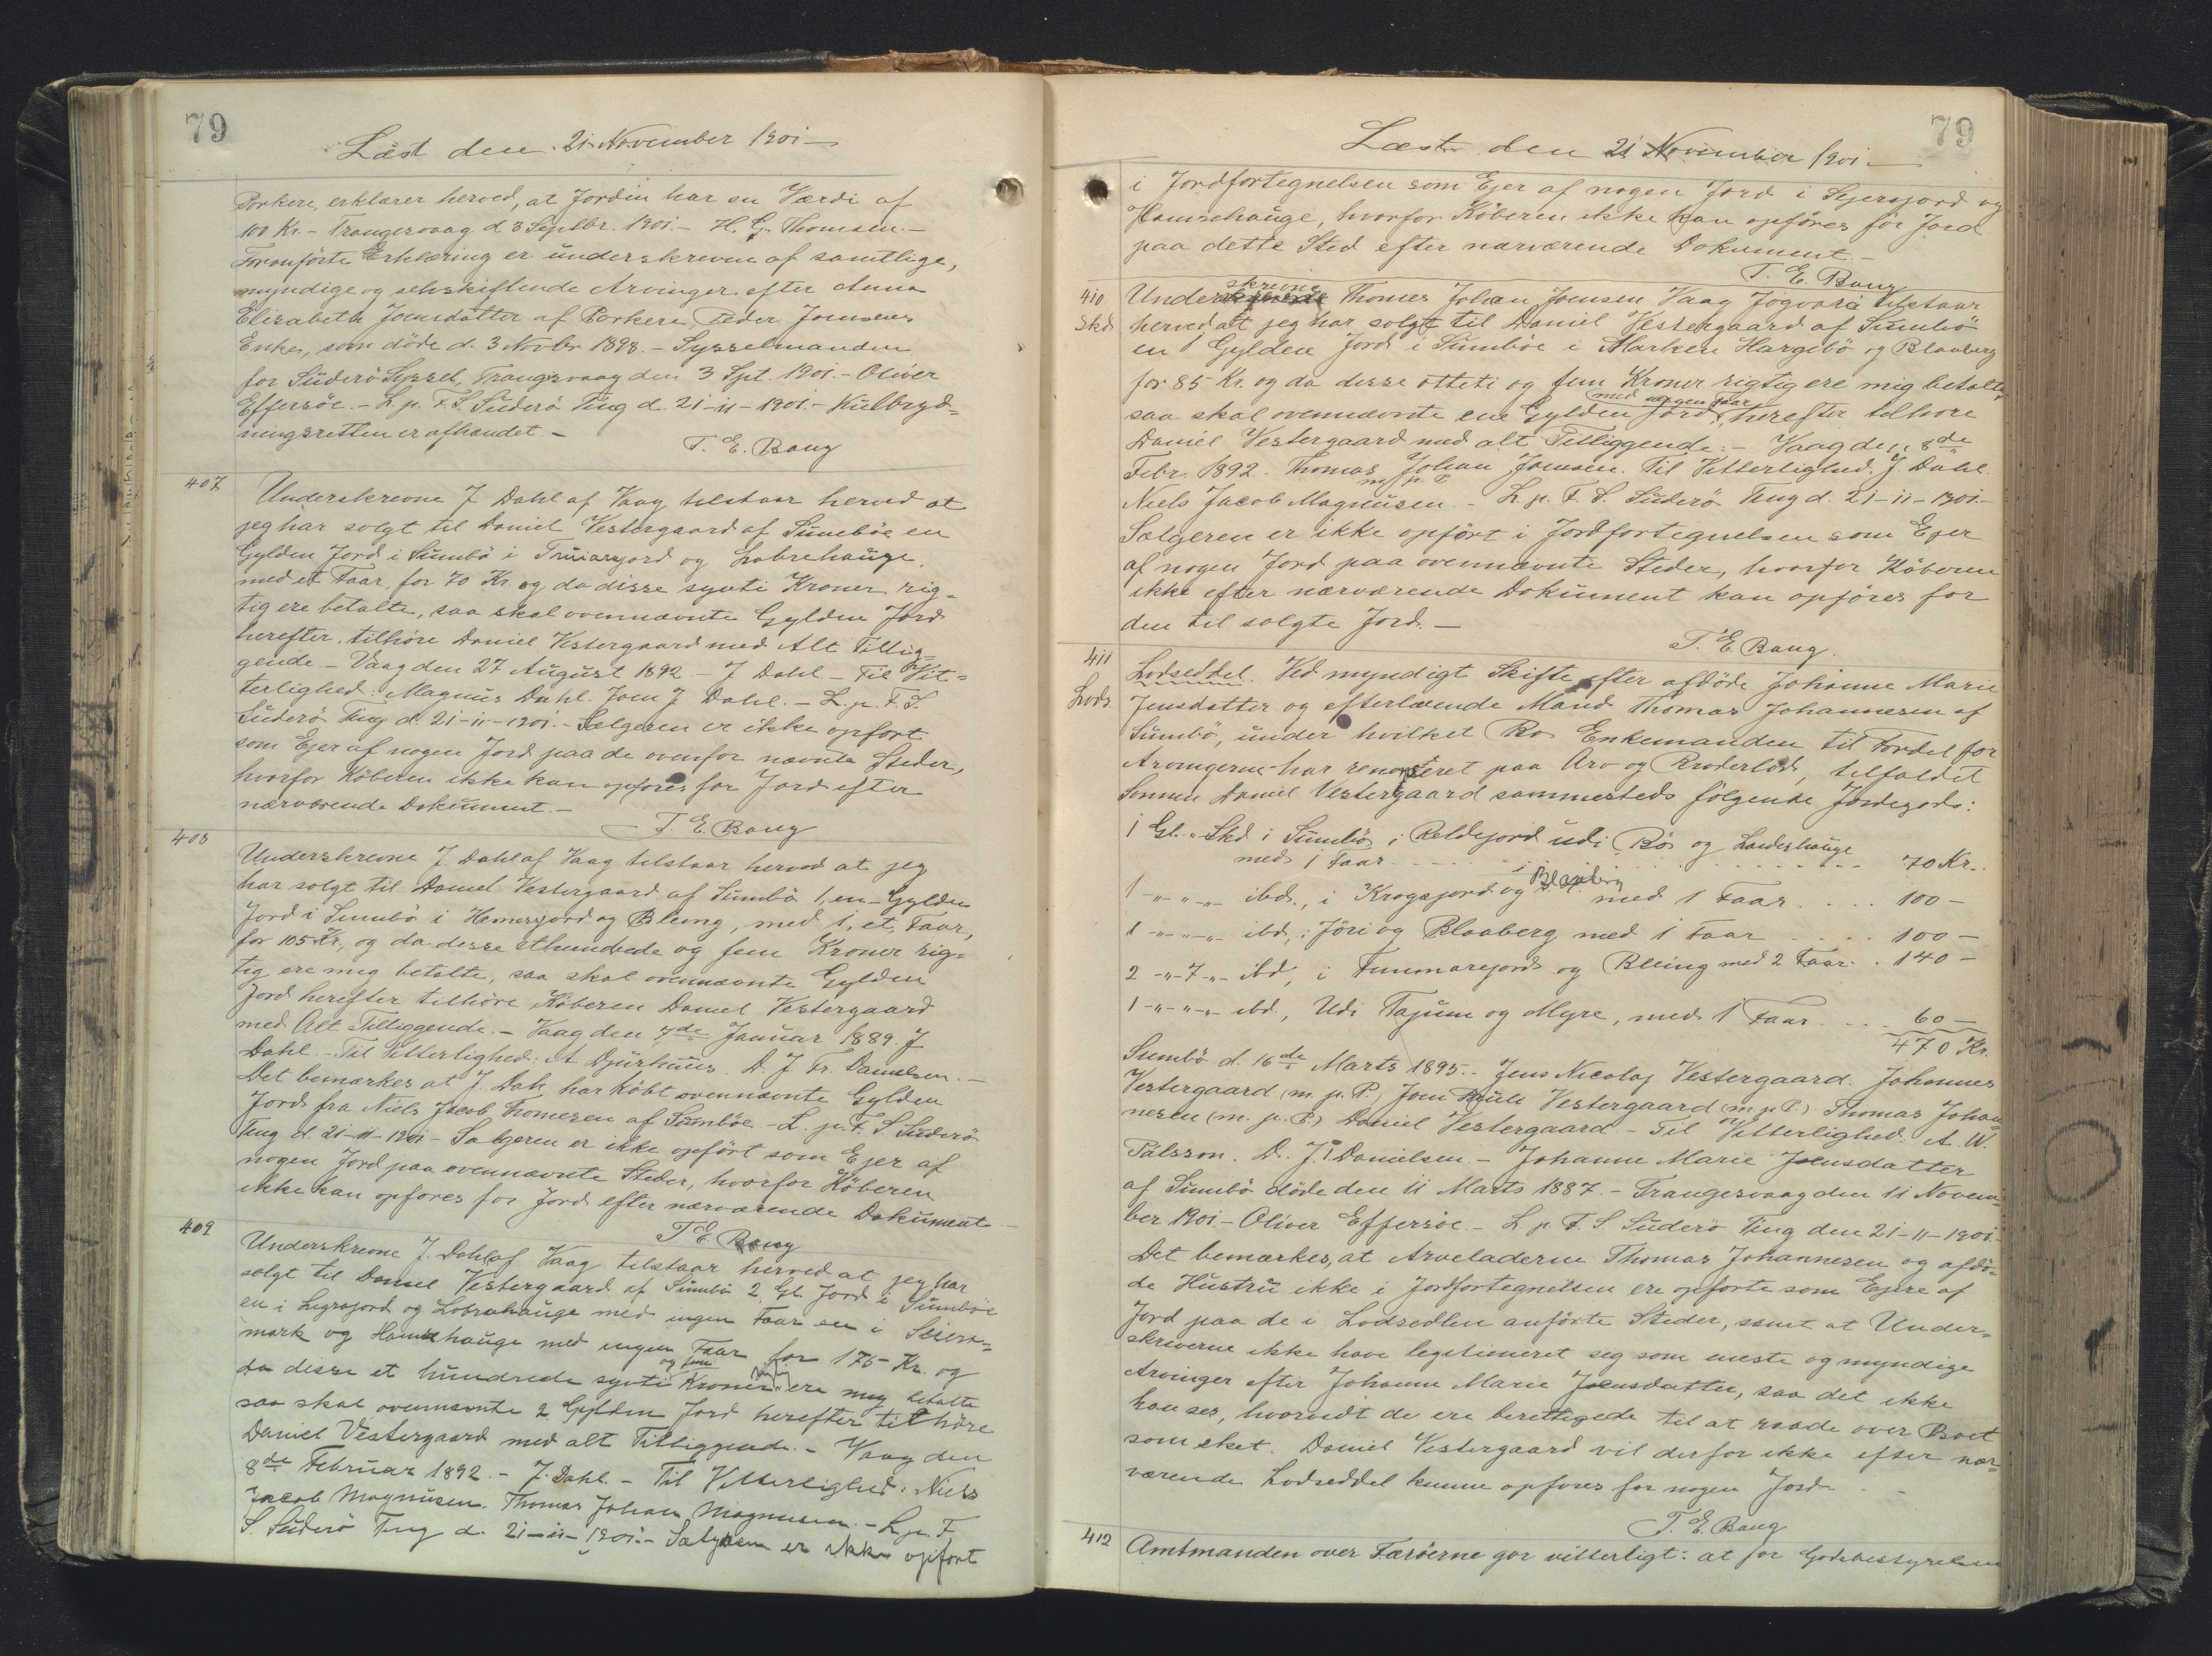 79
Läst den 21 November 1901 —
Porkere, erklærer herved, at Jorden har en Værdi af
100 Kr. – Trangersvaag d. 3 Septbr. 1901. – H. G. Thomsen. –
Foranførte Erklæring er underskreven af samtlige,
myndige og selvskiftende Arvinger efter Anna
Elisabeth Joensdatter af Porkere, Peder Joensens
Enke, som døde d. 3 Novbr 1898. – Sysselmanden
for Süderö Syssel, Trangisvaag den 3 Spt. 1901. – Oliver
Effersöe. – L. p. F. S. Süderö Ting d. 21–11–1901. – Kuldbryd=
ningsretten er afhandet –
T. E. Bang
407
Underskrevne J Dahl af Vaag tilstaar herved at
jeg har solgt til Daniel Vestergaard af Sumböe en
Gylden Jord i Sumbö i Truiarsjord og Lobrehauge,
med et Faar, for 70 Kr og da disse syvti Kroner rig=
tig ere betalte, saa skal ovennævnte Gylden Jord
herefter tilhöre Daniel Vestergaard med Alt Tillig=
gende – Vaag den 27 August 1892 – J Dahl – Til Vit=
terlighed: Magnus Dahl. Joen J Dahl. – L. p. F. S.
Süderö Ting d. 21–11–1901. – Sælgeren er ikke opfört
som Ejer af nogen Jord paa de ovenfor nævnte Steder,
hvorfor Köberen ikke kan opföres for Jord efter
nærværende Dokument. –
T. E. Bang
408
Underskrevne J. Dahl af Vaag tilstaar herved at jeg
har solgt til Daniel Vestergaard af Sumbö 1, en Gylden
Jord i Sumbö i Hamersjord og Bleing, med 1, et, Faar,
for 105 Kr, og da disse ethundrede og fem Kroner rig=
tig ere mig betalte, saa skal ovennævnte Gylden
Jord herefter tilhöre Köberen Daniel Vestergaard
med Alt Tilliggende. – Vaag den 7de Januar 1889. J
Dahl – Til Vitterlighed: A Djurhuus. D. J. Fr. Danielsen. –
Det bemærkes at J. Dahl har köbt ovennævnte Gylden
Jord fra Niels Jacob Thomesen af Sumböe – L. p. F. S. Süderö
Ting d. 21–11–1901 – Sælgeren er ikke opfört som Ejer af
nogen Jord paa ovennævnte Steder, hvorfor Köberen
ikke kan opföres for Jord efter nærværende Dokument –
T E Bang
409
Underskrevne J. Dahl af Vaag tilstaar herved at jeg har
solgt til Daniel Vestergaard af Sumbö 2 Gl. Jord i Sumböe
en i Legrsjord og Lobrahauge med ingen Faar en i Seiers=
mark og Hamrehauge med ingen Faar for 175 Kr. og
da disse et hundrede syvti og fem Kroner ere mig betalte
saa skal ovennævnte 2 Gylden Jord herefter tilhöre
Daniel Vestergaard med alt Tilliggende. – Vaag den
8de Februar 1892. – J. Dahl. – Til Vitterlighed: Niels
Jacob Magnusen. Thomas Johan Magnusen. – L. p. F.
S. Süderö Ting d. 21–11–1901. – Sælgeren er ikke opfört
79
Læst den 21 November 1901 –
i Jordfortegnelsen som Ejer af nogen Jord i Sejersjord og
Hamrehauge, hvorfor Köberen ikke kan opföres för Jord
paa dette Sted efter nærværende Dokument. –
T. E. Bang
410
Skd
Underskrevne Thomes Johan Joensen Vaag Jogvará tilstaar
herved at jeg har solgt til Daniel Vestergaard af Sumbö
en 1 Gylden Jord i Sumböe i Marken Hargebö og Blaaberg
for 85 Kr. og da disse otteti og fem Kroner rigtig ere mig betalte,
saa skal ovennævnte ene Gylden Jord, med ingen Faar herefter tilhore
Daniel Vestergaard med alt Tilliggende. – Vaag den 8de
Febr. 1892. Thomas Johan Joensen. Til Vitterlighed. J. Dahl.
Niels Jacob Magnusen m. p. P. – L. p. F. S. Süderö Ting d. 21–11–1901–
Sælgeren er ikke opfört i Jordfortegnelsen som Ejer
af nogen Jord paa ovennævnte Steder, hvorfor Köberen
ikke efter nærværende Dokument kan opföres for
den til solgte Jord. –
T. E. Bang.
411
Lods.
Lodseddel. Ved myndigt Skifte efter afdöde Johanne Marie
Jensdatter og efterlevende Mand Thomas Johannesen af
Sumbö, under hvilket Bo Enkemanden til Fordel for
Arvingerne har renonceret paa Arv og Broderlod, tilfaldet
Sönnen Daniel Vestergaard sammesteds fölgende Jordegods:
1 Gl. " Skd i Sumbö, i Reldejord udi Bö og Landerhauge
med 1 Faar . . . . . . 70 Kr.
1 –"–"–"– ibd., i Krogsjord og i Blaaberg med 1 Faar . . . . 100 –
1 –"–"–"– ibd, i Jöri og Blaaberg med 1 Faar . . . . 100 –
2 –"–7–"– ibd, i Funmarejord og Bleing med 2 Faar . 140 –
1 –"–"–"– ibd., Udi Tajum og Myre, med 1 Faar . . . 60 –
470 Kr.
Sumbö d. 16de Marts 1895. – Jens Nicolaj Vestergaard. Johannes
Vestergaard (m. p. P.) Joen Poule Vestergaard (m. p. P.) Thomas Johan=
nesen (m. p. P.) Daniel Vestergaard. – Til Vitterlighed. A. W.
Pálsson. D. J. Danielsen. – Johanne Marie Jensdatter
af Sumbö döde den 11 Marts 1887. – Trangesvaag den 11 Novem=
ber 1901 – Oliver Effersöe. – L. p. F. S. Süderö Ting den 21–11–1901–
Det bemærkes, at Arveladerne Thomas Johannesen og afdö=
de Hustru ikke i Jordfortegnelsen ere opforte som Ejere af
Jord paa de i Lodsedlen anförte Steder, samt at Under=
skriverne ikke have legitimeret sig som eneste og myndige
Arvinger efter Johanne Marie Jensdatter, saa det ikke
kan ses, hvorvidt de ere berettigede til at raade over Boet
som sket. Daniel Vestergaard vil derfor ikke efter nær=
værende Lodseddel kunne opfores for nogen Jord –
T. E. Bang
412
Amtmanden over Færöerne gör vitterligt: at for Godsbestyrelsen